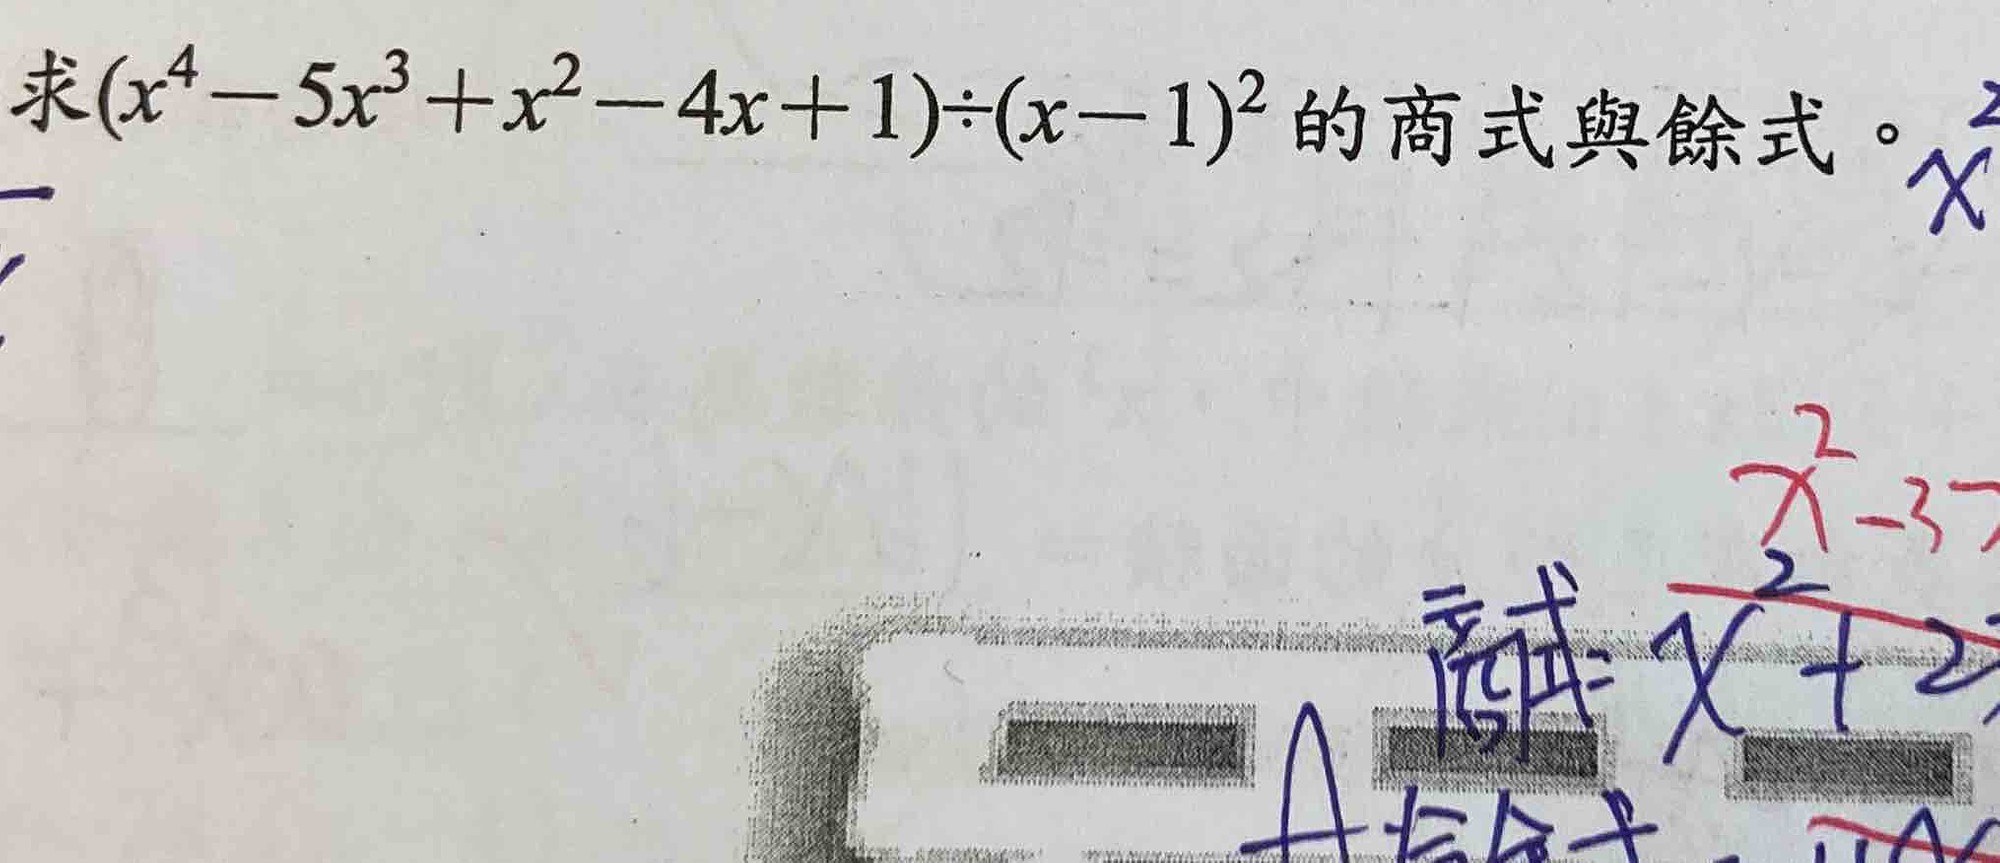 求(x⁴－5x³＋x²－4x＋1)÷(x－1)²的商式與餘式。
x²
x²-3
商式= x²+2
餘式